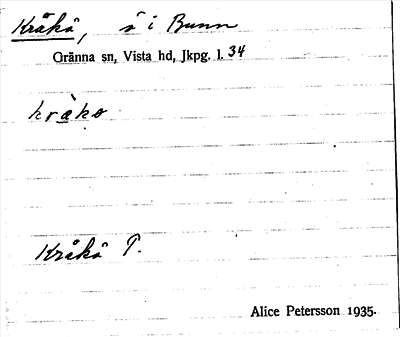 Kråkö, ö i Bunn
Gränna sn, Vista hd, Jkpg. l. 34
kràkø
Kråkö T.
Alice Petersson 1935.